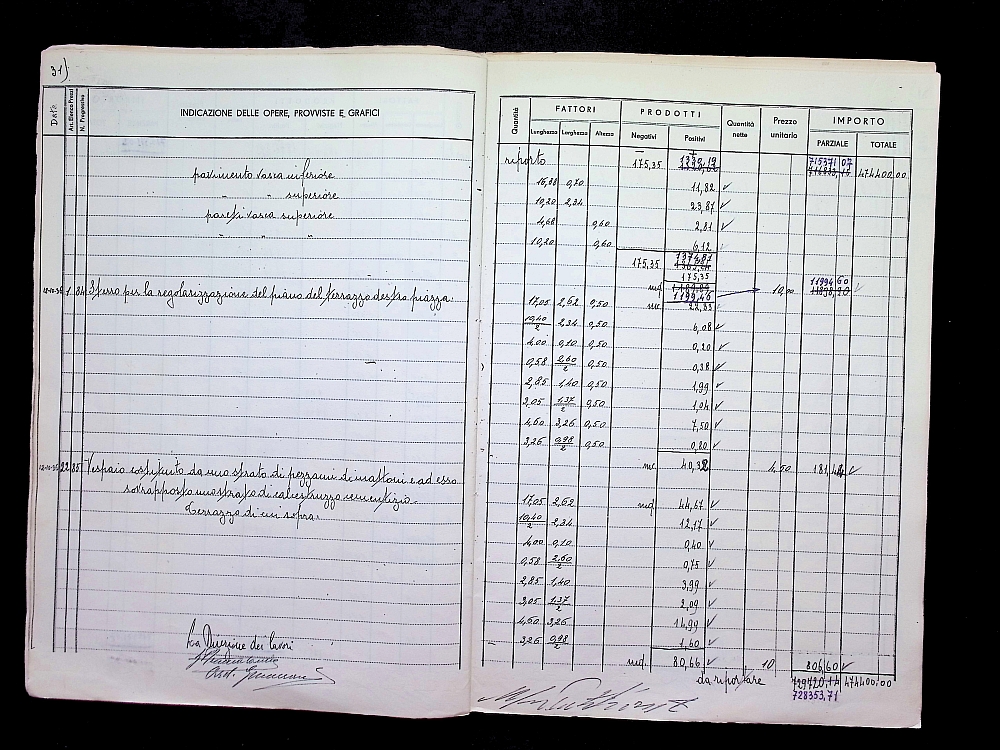 31)
Data
Art. Elenco Prezzi
N. Progressivo
INDICAZIONE DELLE OPERE, PROVVISTE E GRAFICI
pavimento vasca inferiore
" " superiore
pareti vasca superiore
" " "
12-10-36 1 84 Sterro per la regolarizzazione del piano del terrazzo destra piazza.
12-10-36 22 85 Vespaio costituito da uno strato di pezzami di mattoni e ad esso
sovrapposto uno strato di calcestruzzo cementizio.
Terrazzo di cui sopra.
La Direzione dei lavori
Quantità
FATTORI
PRODOTTI
Quantità nette
Prezzo unitario
IMPORTO
Lunghezza Larghezza Altezza
Negativi Positivi
PARZIALE TOTALE
riporto 175,35 1330,19 715371 07 474400.00
16,88 0,70 11,82
10,20 2,34 23,87
4,68 0,60 2,81
10,20 0,60 6,12
175,35 1374,81
175,35
mq 1199,46 10,00 11994 60
17,05 2,62 0,50 mc 22,33
10,40/2 2,34 0,50 6,08
4,00 0,10 0,50 0,20
0,58 2,60/2 0,50 0,38
2,85 1,40 0,50 1,99
3,05 1,37/2 0,50 1,04
4,60 3,26 0,50 7,50
3,26 0,98/2 0,50 0,80
mc 40,32 4,50 181,44
17,05 2,62 mq 44,67
10,40/2 2,34 12,17
4,00 0,10 0,40
0,58 2,60/2 0,75
2,85 1,40 3,99
3,05 1,37/2 2,09
4,60 3,26 14,99
3,26 0,98/2 1,60
mq. 80,66 10 806,60
da riportare 474400.00
728353,71